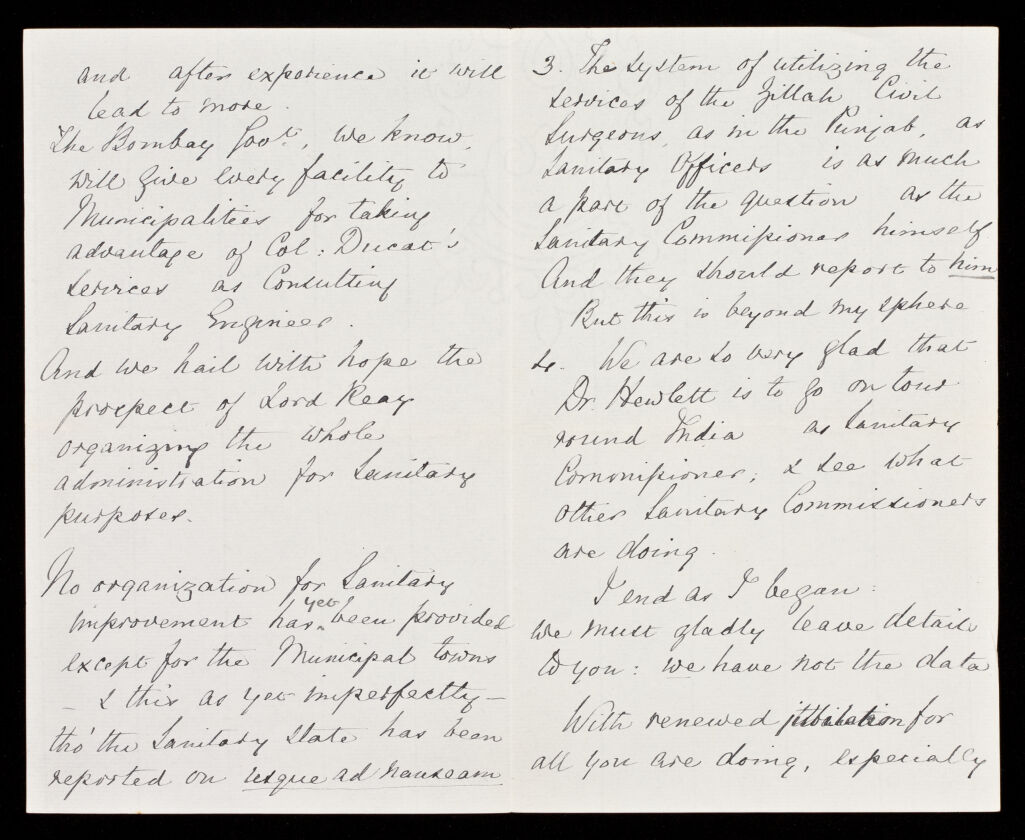 and after experience it will
lead to more.
The Bombay Govt., we know,
will give every facility to
Municipalities for taking
advantage of Col: Ducat's
services as Consulting
Sanitary Engineer.
And we hail with hope the
prospect of Lord Reay
organizing the whole
administration for Sanitary
purposes.
No organization for Sanitary
improvement has yet been provided
except for the Municipal towns
– & this as yet imperfectly –
tho' the Sanitary State has been
reported on usque ad nauseam
3. The system of utilizing the
services of the Zillah Civil
Surgeons, as in the Punjab, as
Sanitary Officers is as much
a part of the question as the
Sanitary Commissioner himself
And they should report to him
But this is beyond my sphere
4. We are so very glad that
Dr. Hewlett is to go on tour
round India as Sanitary
Commissioner; & see what
other Sanitary Commissioners
are doing.
I end as I began:
We must gladly leave details
to you: we have not the data
With renewed jubilation for
all you are doing, especially